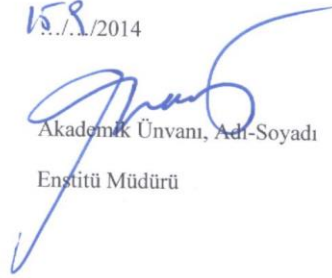 15/9/2014
Akademik Ünvanı, Adı-Soyadı
Enstitü Müdürü